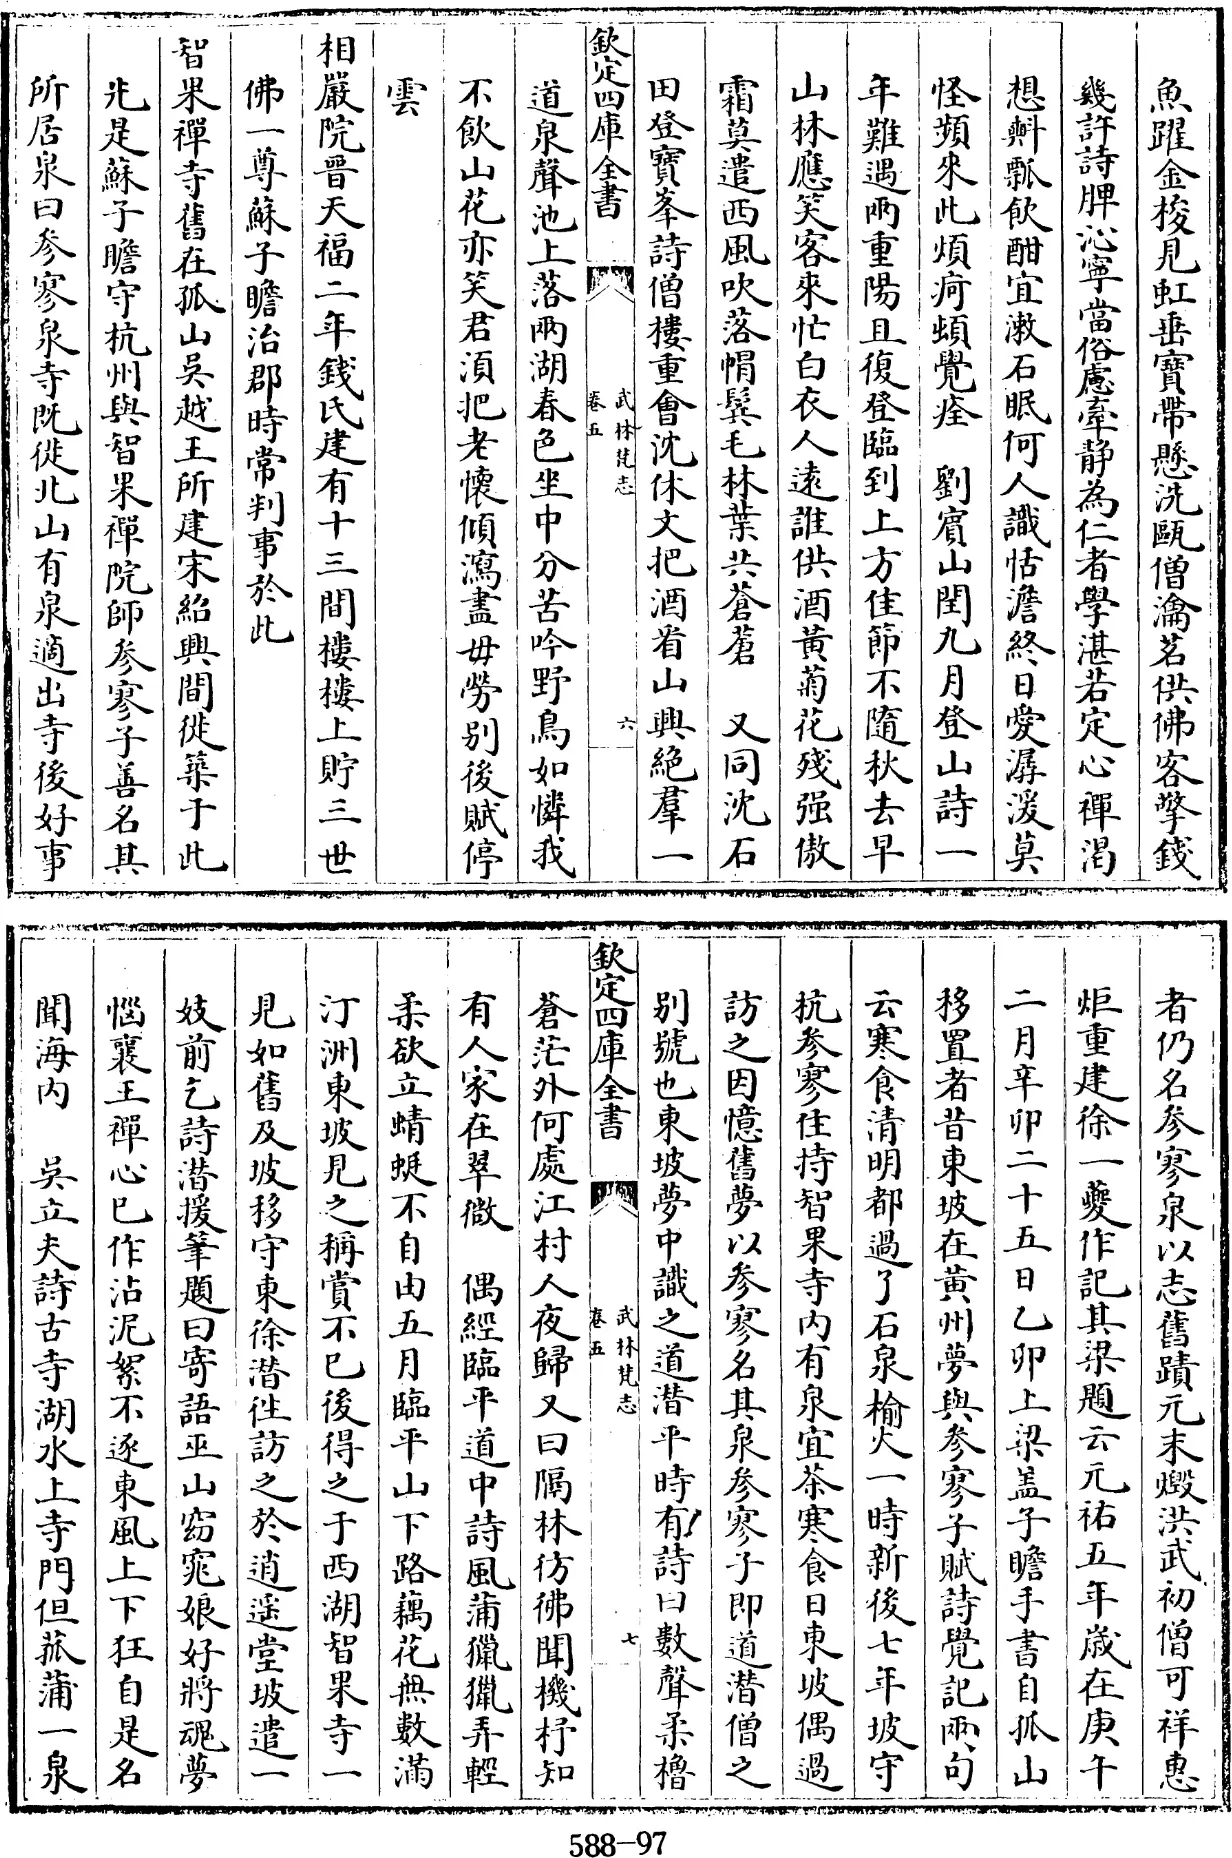 魚躍金梭見虹垂寶帶懸洗甌僧瀹茗供佛客擎錢
幾許詩脾沁寧當俗慮牽静為仁者學湛若定心禪渴
想㪺瓢飲酣宜漱石眠何人識恬澹終日愛潺湲莫
怪頻來此煩疴頓覺痊　劉賓山閏九月登山詩一
年難遇兩重陽且復登臨到上方佳節不隨秋去早
山林應笑客來忙白衣人遠誰供酒黄菊花殘强傲
霜莫遣西風吹落帽鬂毛林葉共蒼蒼　又同沈石
田登寶峯詩僧樓重會沈休文把酒看山興絶羣一
欽定四庫全書
武林梵志
卷五
六
道泉聲池上落兩湖春色坐中分苦吟野鳥如憐我
不飲山花亦笑君須把老懷傾瀉盡毋勞别後賦停
雲
相嚴院晉天福二年錢氏建有十三間樓樓上貯三世
佛一尊蘇子瞻治郡時常判事於此
智果禪寺舊在孤山吳越王所建宋紹興間徙築于此
先是蘇子瞻守杭州與智果禪院師参寥子善名其
所居泉曰参寥泉寺既徙北山有泉適出寺後好事
者仍名参寥泉以志舊蹟元末燬洪武初僧可祥惠
炬重建徐一夔作記其梁題云元祐五年歲在庚午
二月辛卯二十五日乙卯上梁盖子瞻手書自孤山
移置者昔東坡在黄州夢與参寥子賦詩覺記兩句
云寒食清明都過了石泉榆火一時新後七年坡守
杭参寥住持智果寺内有泉宜茶寒食日東坡偶過
訪之因憶舊夢以参寥名其泉参寥子即道潛僧之
别號也東坡夢中識之道潛平時有詩曰數聲柔櫓
欽定四庫全書
武林梵志
卷五
七
蒼茫外何處江村人夜歸又曰隔林彷彿聞機杼知
有人家在翠微　偶經臨平道中詩風蒲獵獵弄輕
柔欲立蜻蜓不自由五月臨平山下路藕花無數滿
汀洲東坡見之稱賞不已後得之于西湖智果寺一
見如舊及坡移守東徐潛往訪之於逍遥堂坡遣一
妓前乞詩潛援筆題曰寄語巫山窈窕娘好將魂夢
惱襄王禪心已作沾泥絮不逐東風上下狂自是名
聞海内　吳立夫詩古寺湖水上寺門但菰蒲一泉
588-97